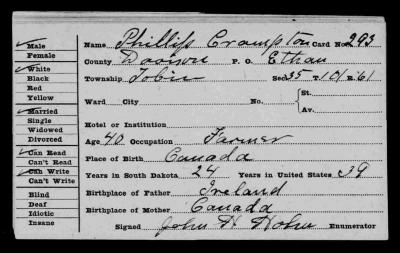 Male
Female
White
Black
Red
Yellow
Married
Single
Widowed
Divorced
Can Read
Can't Read
Can Write
Can't Write
Blind
Deaf
Idiotic
Insane
Name Phillip Crompton Card No. 293
County Davison P. O. Ethan
Township Tobin Sec. 35 T. 101 R. 61
Ward City No. St.
Av.
Hotel or Institution
Age 40 Occupation Farmer
Place of Birth Canada
Years in South Dakota 24 Years in United States 39
Birthplace of Father Ireland
Birthplace of Mother Canada
Signed John H Enumerator